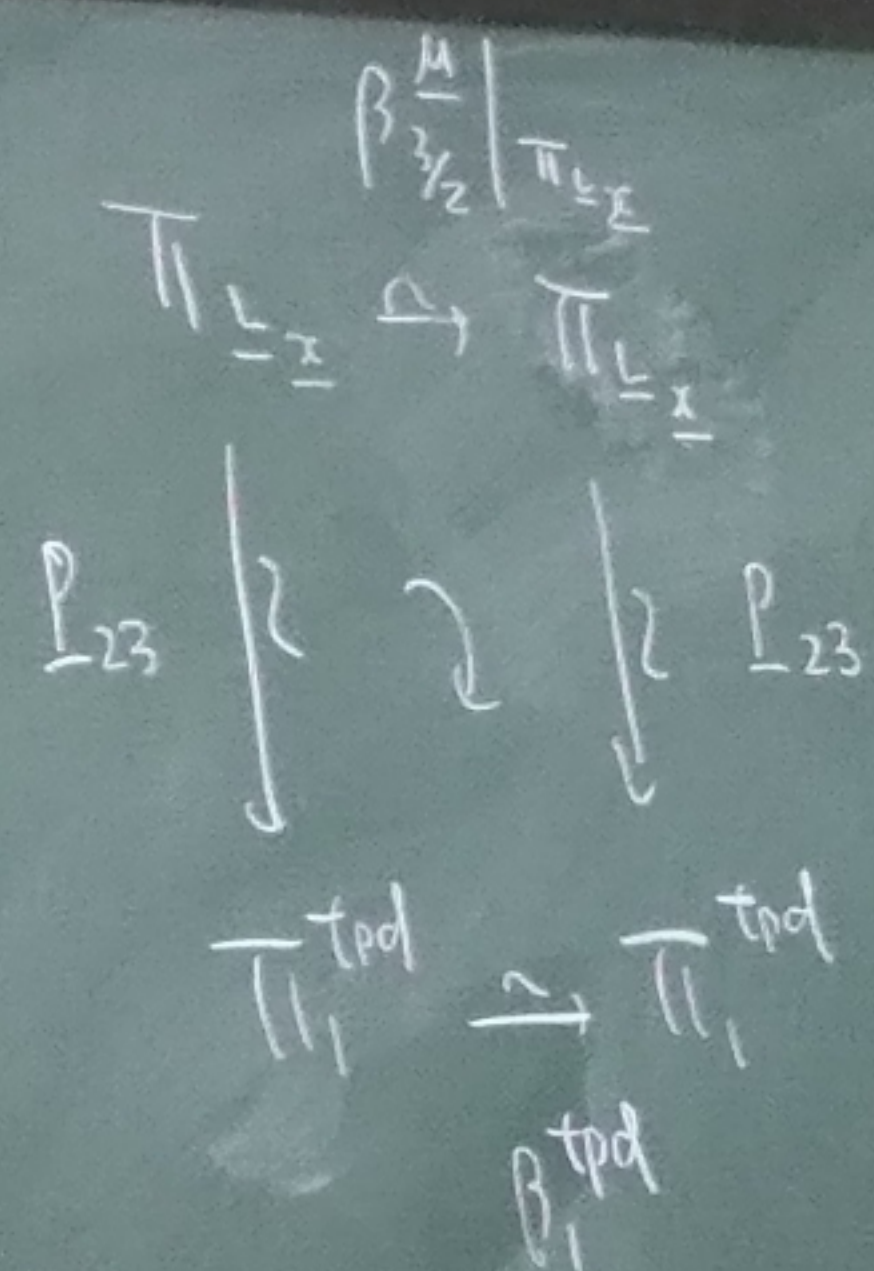 β^{\underline{μ}}_{3/2} |_{Π_{\underline{L}_{\underline{x}}}}
Π_{\underline{L}_{\underline{x}}} ⥲ Π_{\underline{L}_{\underline{x}}}
\underline{P}_{23} ↓≀ ↷ ↓≀ \underline{P}_{23}
Π_1^{tpd} ⥲ Π_1^{tpd}
β_1^{tpd}